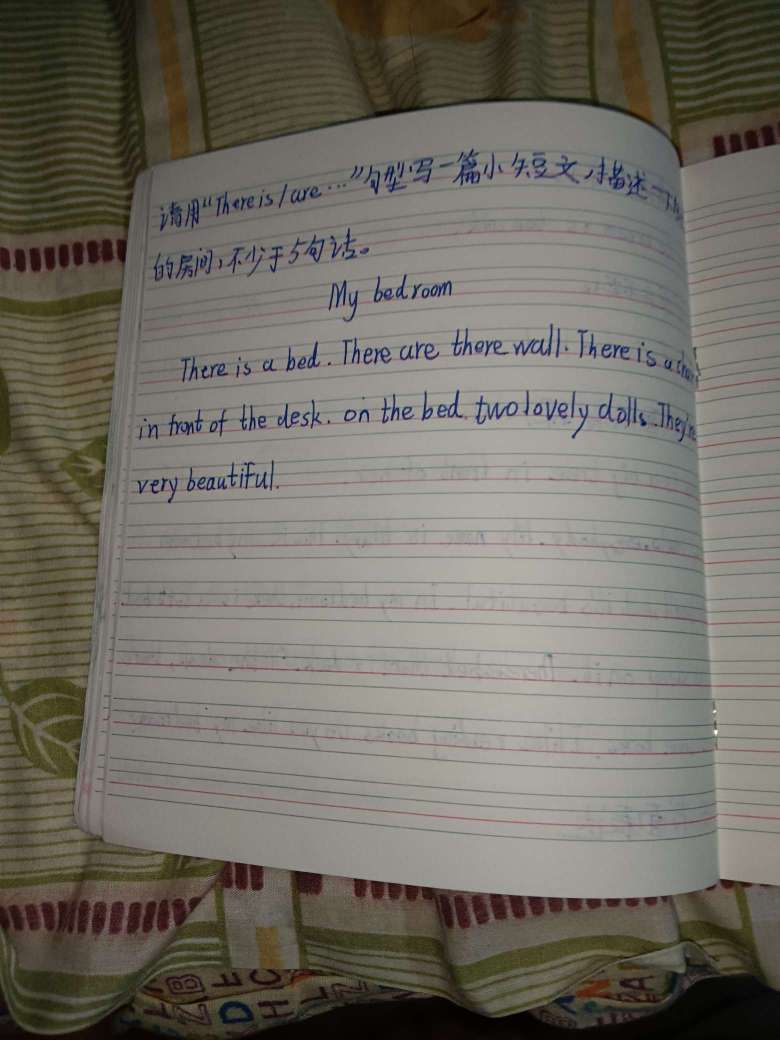 请用“There is / are ...”句型写一篇小短文，描述一下
的房间，不少于5句话。
My bedroom
There is a bed. There are there wall. There is a
in front of the desk. on the bed. two lovely dolls. They're
very beautiful.